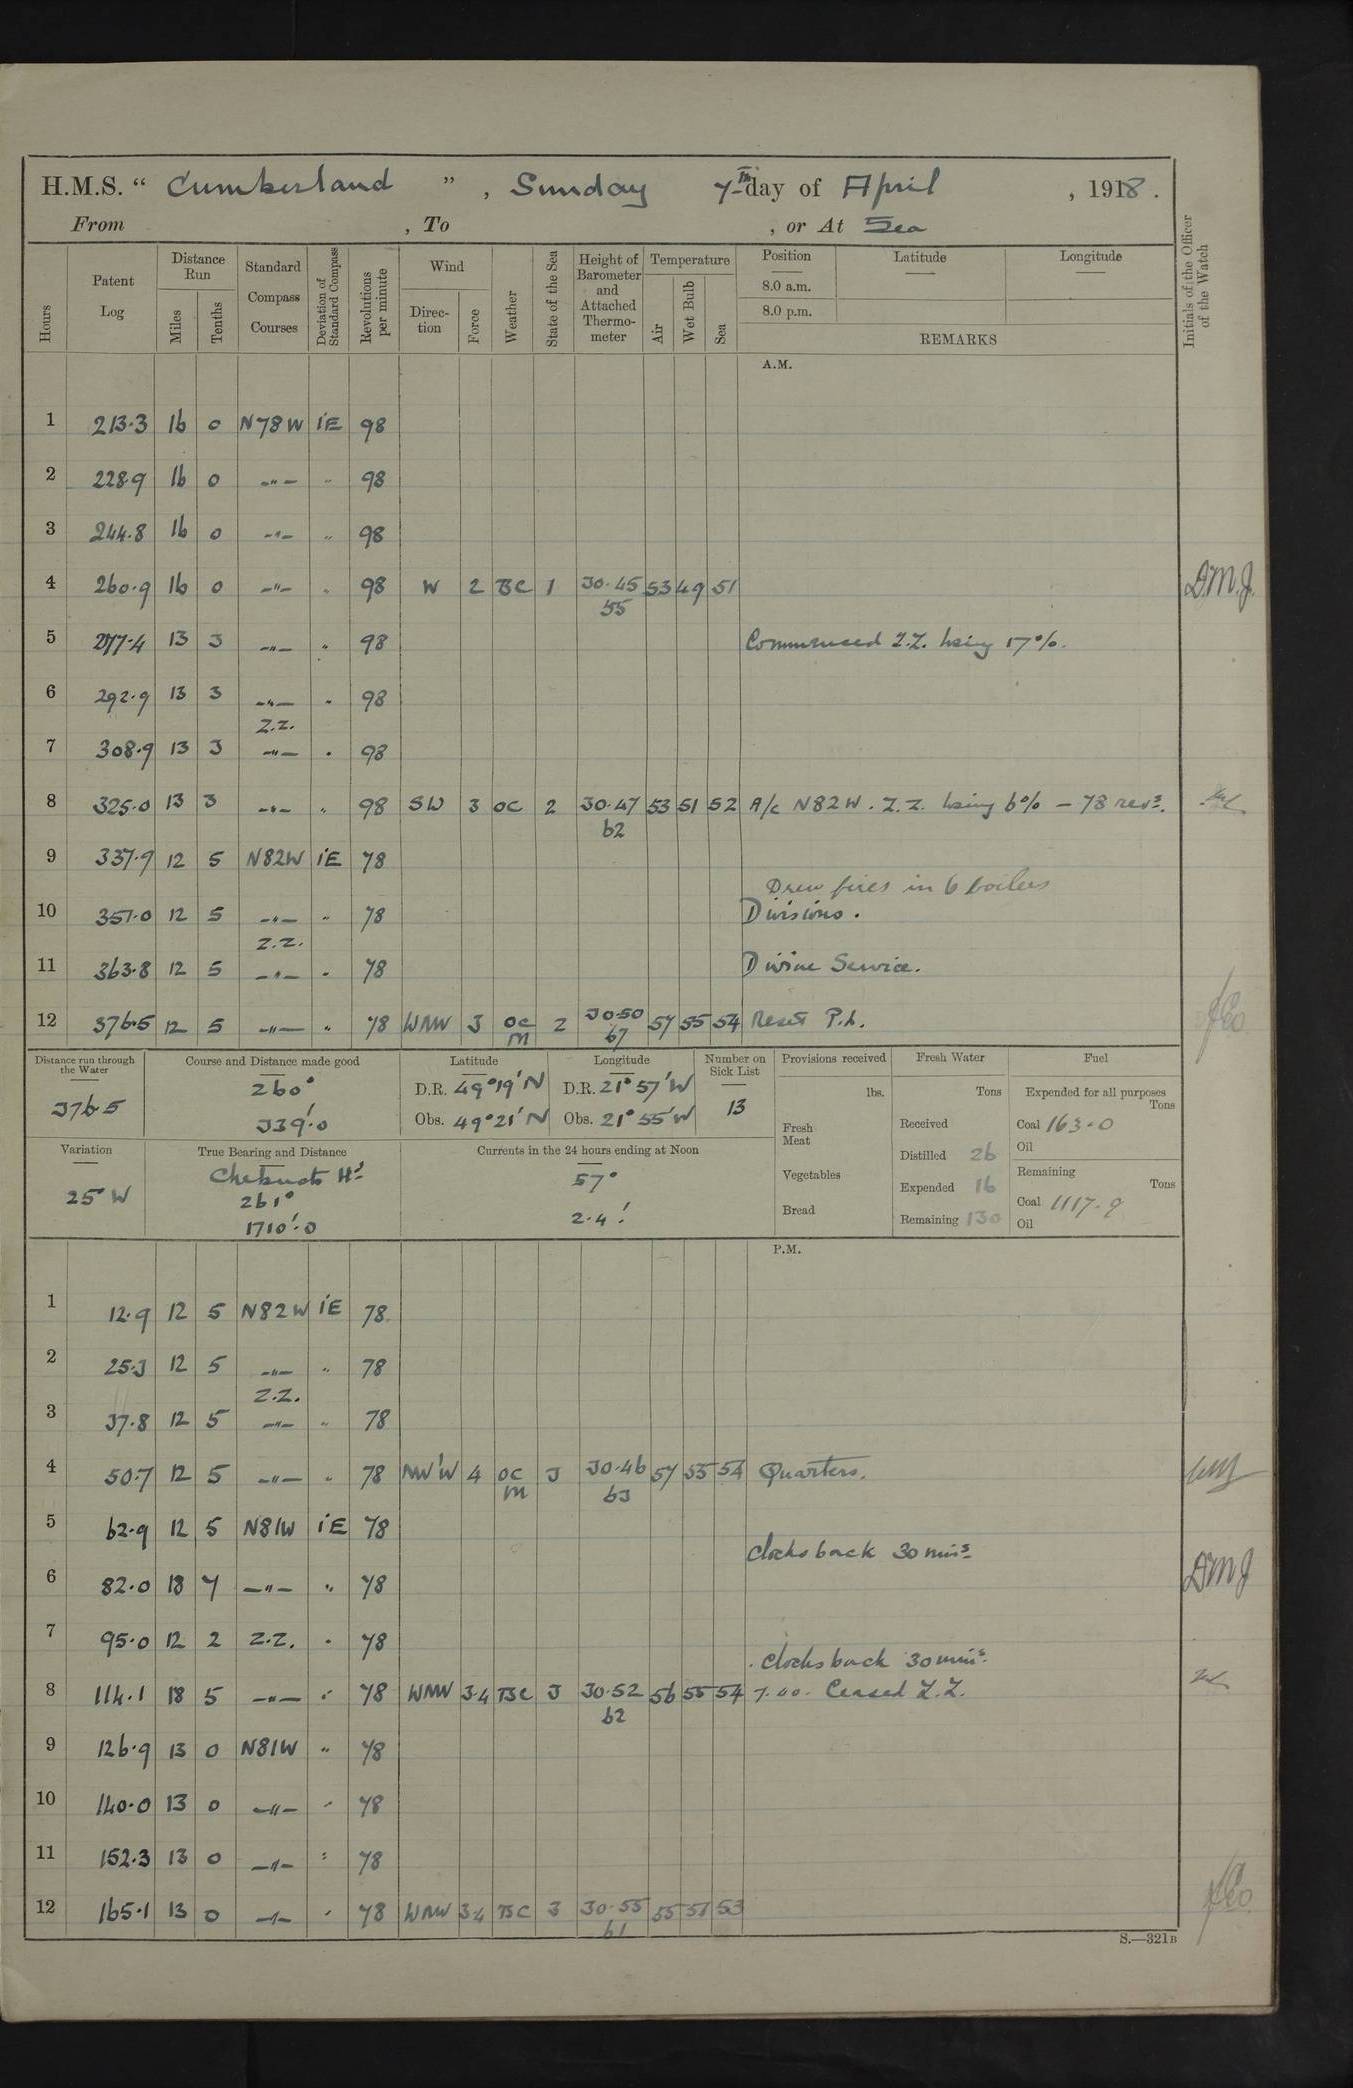 H.M.S. “ Cumberland ” , Sunday 7th day of April , 1918.
From , To , or At Sea
Hours Patent Log Distance Run Miles Tenths Standard Compass Courses Deviation of Standard Compass Revolutions per minute Wind Direction Force Weather State of the Sea Height of Barometer and Attached Thermometer Temperature Air Wet Bulb Sea Position 8.0 a.m. 8.0 p.m. Latitude Longitude REMARKS Initials of the Officer of the Watch
A.M.
1 213.3 16 0 N78W 1E 98
2 228.9 16 0 -"- " 98
3 244.8 16 0 -"- " 98
4 260.9 16 0 -"- " 98 W 2 BC 1 30.45 53 49 51 D.M.J.
55
5 277.4 13 3 -"- " 98 Commenced Z.Z. losing 17%.
6 292.9 13 3 -"- " 98
Z.Z.
7 308.9 13 3 -"- " 98
8 325.0 13 3 -"- " 98 SW 3 OC 2 30.47 53 51 52 A/c N82W. Z.Z. losing 6% - 78 revs.
62
9 337.9 12 5 N82W 1E 78
Drew fires in 6 boilers
10 351.0 12 5 -"- " 78 Divisions.
Z.Z.
11 363.8 12 5 -"- " 78 Divine Service.
12 376.5 12 5 -"- " 78 WNW 3 OC 2 30.50 57 55 54 Reset P.L.
M 67
Distance run through the Water
376.5
Course and Distance made good
260°
339'.0
Latitude
D.R. 49°19'N
Obs. 49°21'N
Longitude
D.R. 21°57'W
Obs. 21°55'W
Number on Sick List
13
Provisions received
lbs.
Fresh Meat
Vegetables
Bread
Fresh Water
Tons
Received
Distilled 26
Expended 16
Remaining 130
Fuel
Expended for all purposes
Tons
Coal 163.0
Oil
Remaining
Tons
Coal 1117.9
Oil
Variation
25°W
True Bearing and Distance
Chebucto Hd
261°
1710'.0
Currents in the 24 hours ending at Noon
57°
2.4'
P.M.
1 12.9 12 5 N82W 1E 78
2 25.3 12 5 -"- " 78
Z.Z.
3 37.8 12 5 -"- " 78
4 50.7 12 5 -"- " 78 NW'W 4 OC 3 30.46 57 55 54 Quarters.
M 63
5 62.9 12 5 N81W 1E 78
Clocks back 30 mins
6 82.0 18 7 -"- " 78 DMJ
7 95.0 12 2 Z.Z. " 78
Clocks back 30 mins.
8 114.1 18 5 -"- " 78 WNW 3.4 BC 3 30.52 56 55 54 7.40. Ceased Z.Z.
62
9 126.9 13 0 N81W " 78
10 140.0 13 0 -"- " 78
11 152.3 13 0 -"- " 78
12 165.1 13 0 -"- " 78 WNW 3.4 BC 3 30.55 55 51 53
61
S.—321B